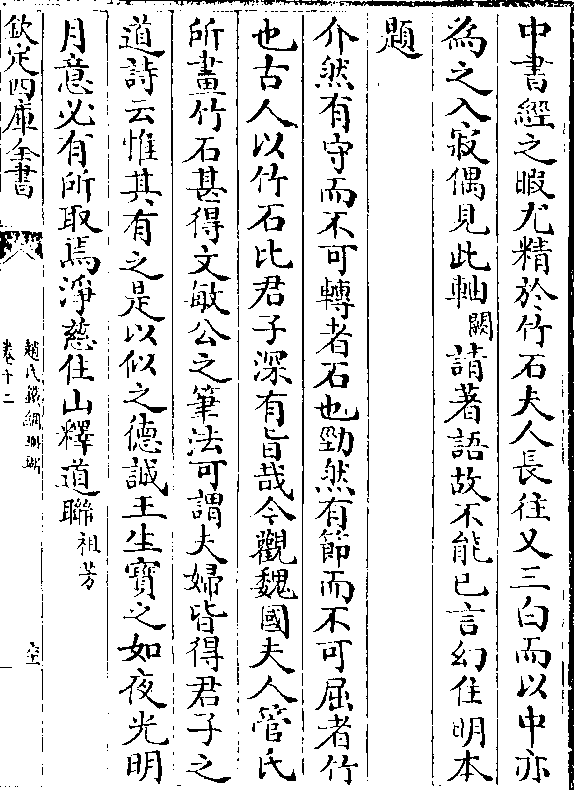 中書經之暇尤精於竹石夫人長往又三白而以中亦
為之入寂偶見此軸闕請著語故不能已言幻住明本
題
介然有守而不可轉者石也勁然有節而不可屈者竹
也古人以竹石比君子深有旨哉今觀魏國夫人管氏
所畫竹石甚得文敏公之筆法可謂夫婦皆得君子之
道詩云惟其有之是以似之德誠王生寳之如夜光明
月意必有所取焉淨慈住山釋道聯祖芳
欽定四庫全書
趙氏鐵網珊瑚
卷十二